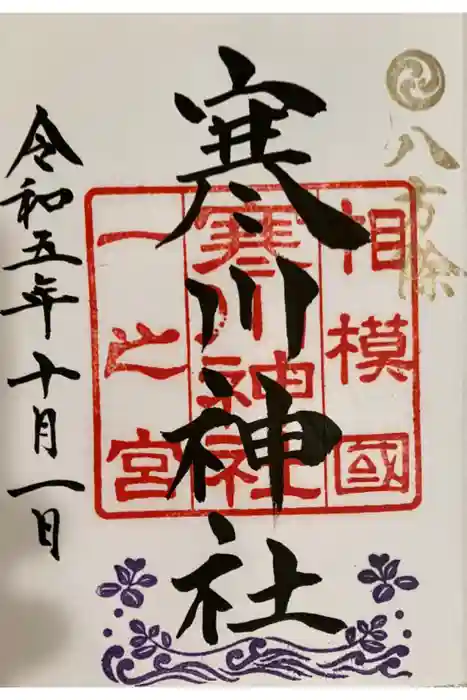 八方除
相模國
寒川神社
一之宮
寒川神社
令和五年十月一日